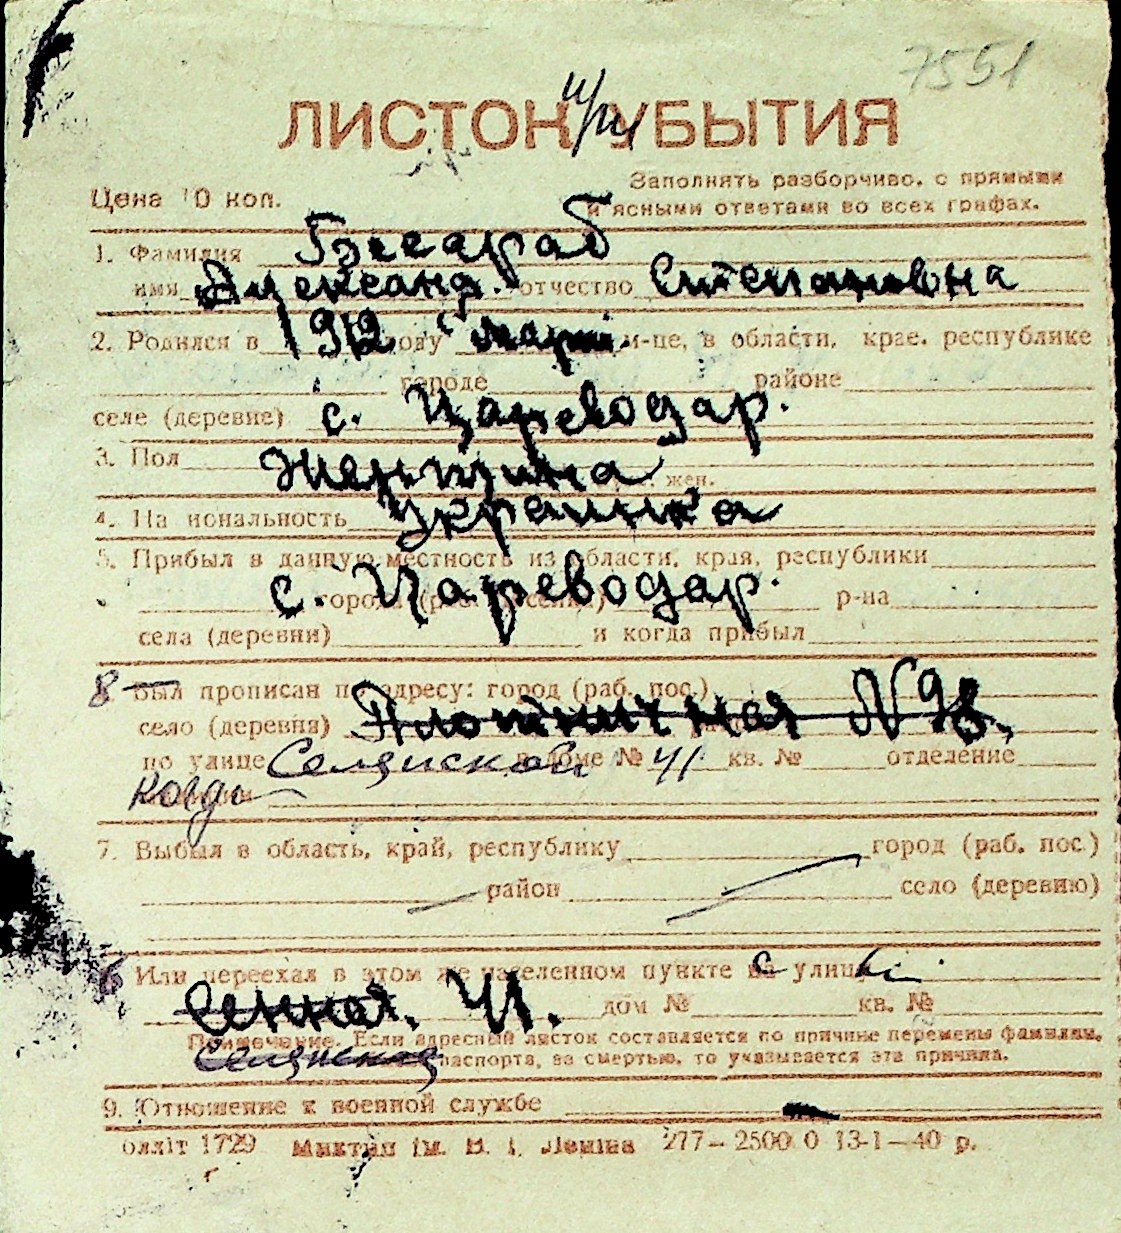 7551
ЛИСТОК УБЫТИЯ
при
Цена 10 коп.
Заполнять разборчиво, с прямыми
и ясными ответами во всех графах.
1. Фамилия Бесараб
имя Александ. отчество Степановна
2. Родился в 1912 году март м-це, в области, крае, республике
городе районе
селе (деревне) с. Цареводар.
3. Пол Женщина жен.
4. Национальность украинка
5. Прибыл в данную местность из области, края, республики
с. Цареводар.
города (раб. поселка) р-на
села (деревни) и когда прибыл
8 Был прописан по адресу: город (раб. пос.)
село (деревня) Плотничная N 98.
по улице Селянской в доме № 41 кв. № отделение
когда
7. Выбыл в область, край, республику город (раб. пос.)
район село (деревню)
6 Или переехал в этом же населенном пункте с улицы
Сенная. 41.
дом № кв. №
Примечание. Если адресный листок составляется по причине перемены фамилии,
Селянской паспорта, за смертью, то указывается эта причина.
9. Отношение к военной службе
оллiт 1729 Миктип iм. В. I. Ленiна 277—2500 0 13-1—40 р.